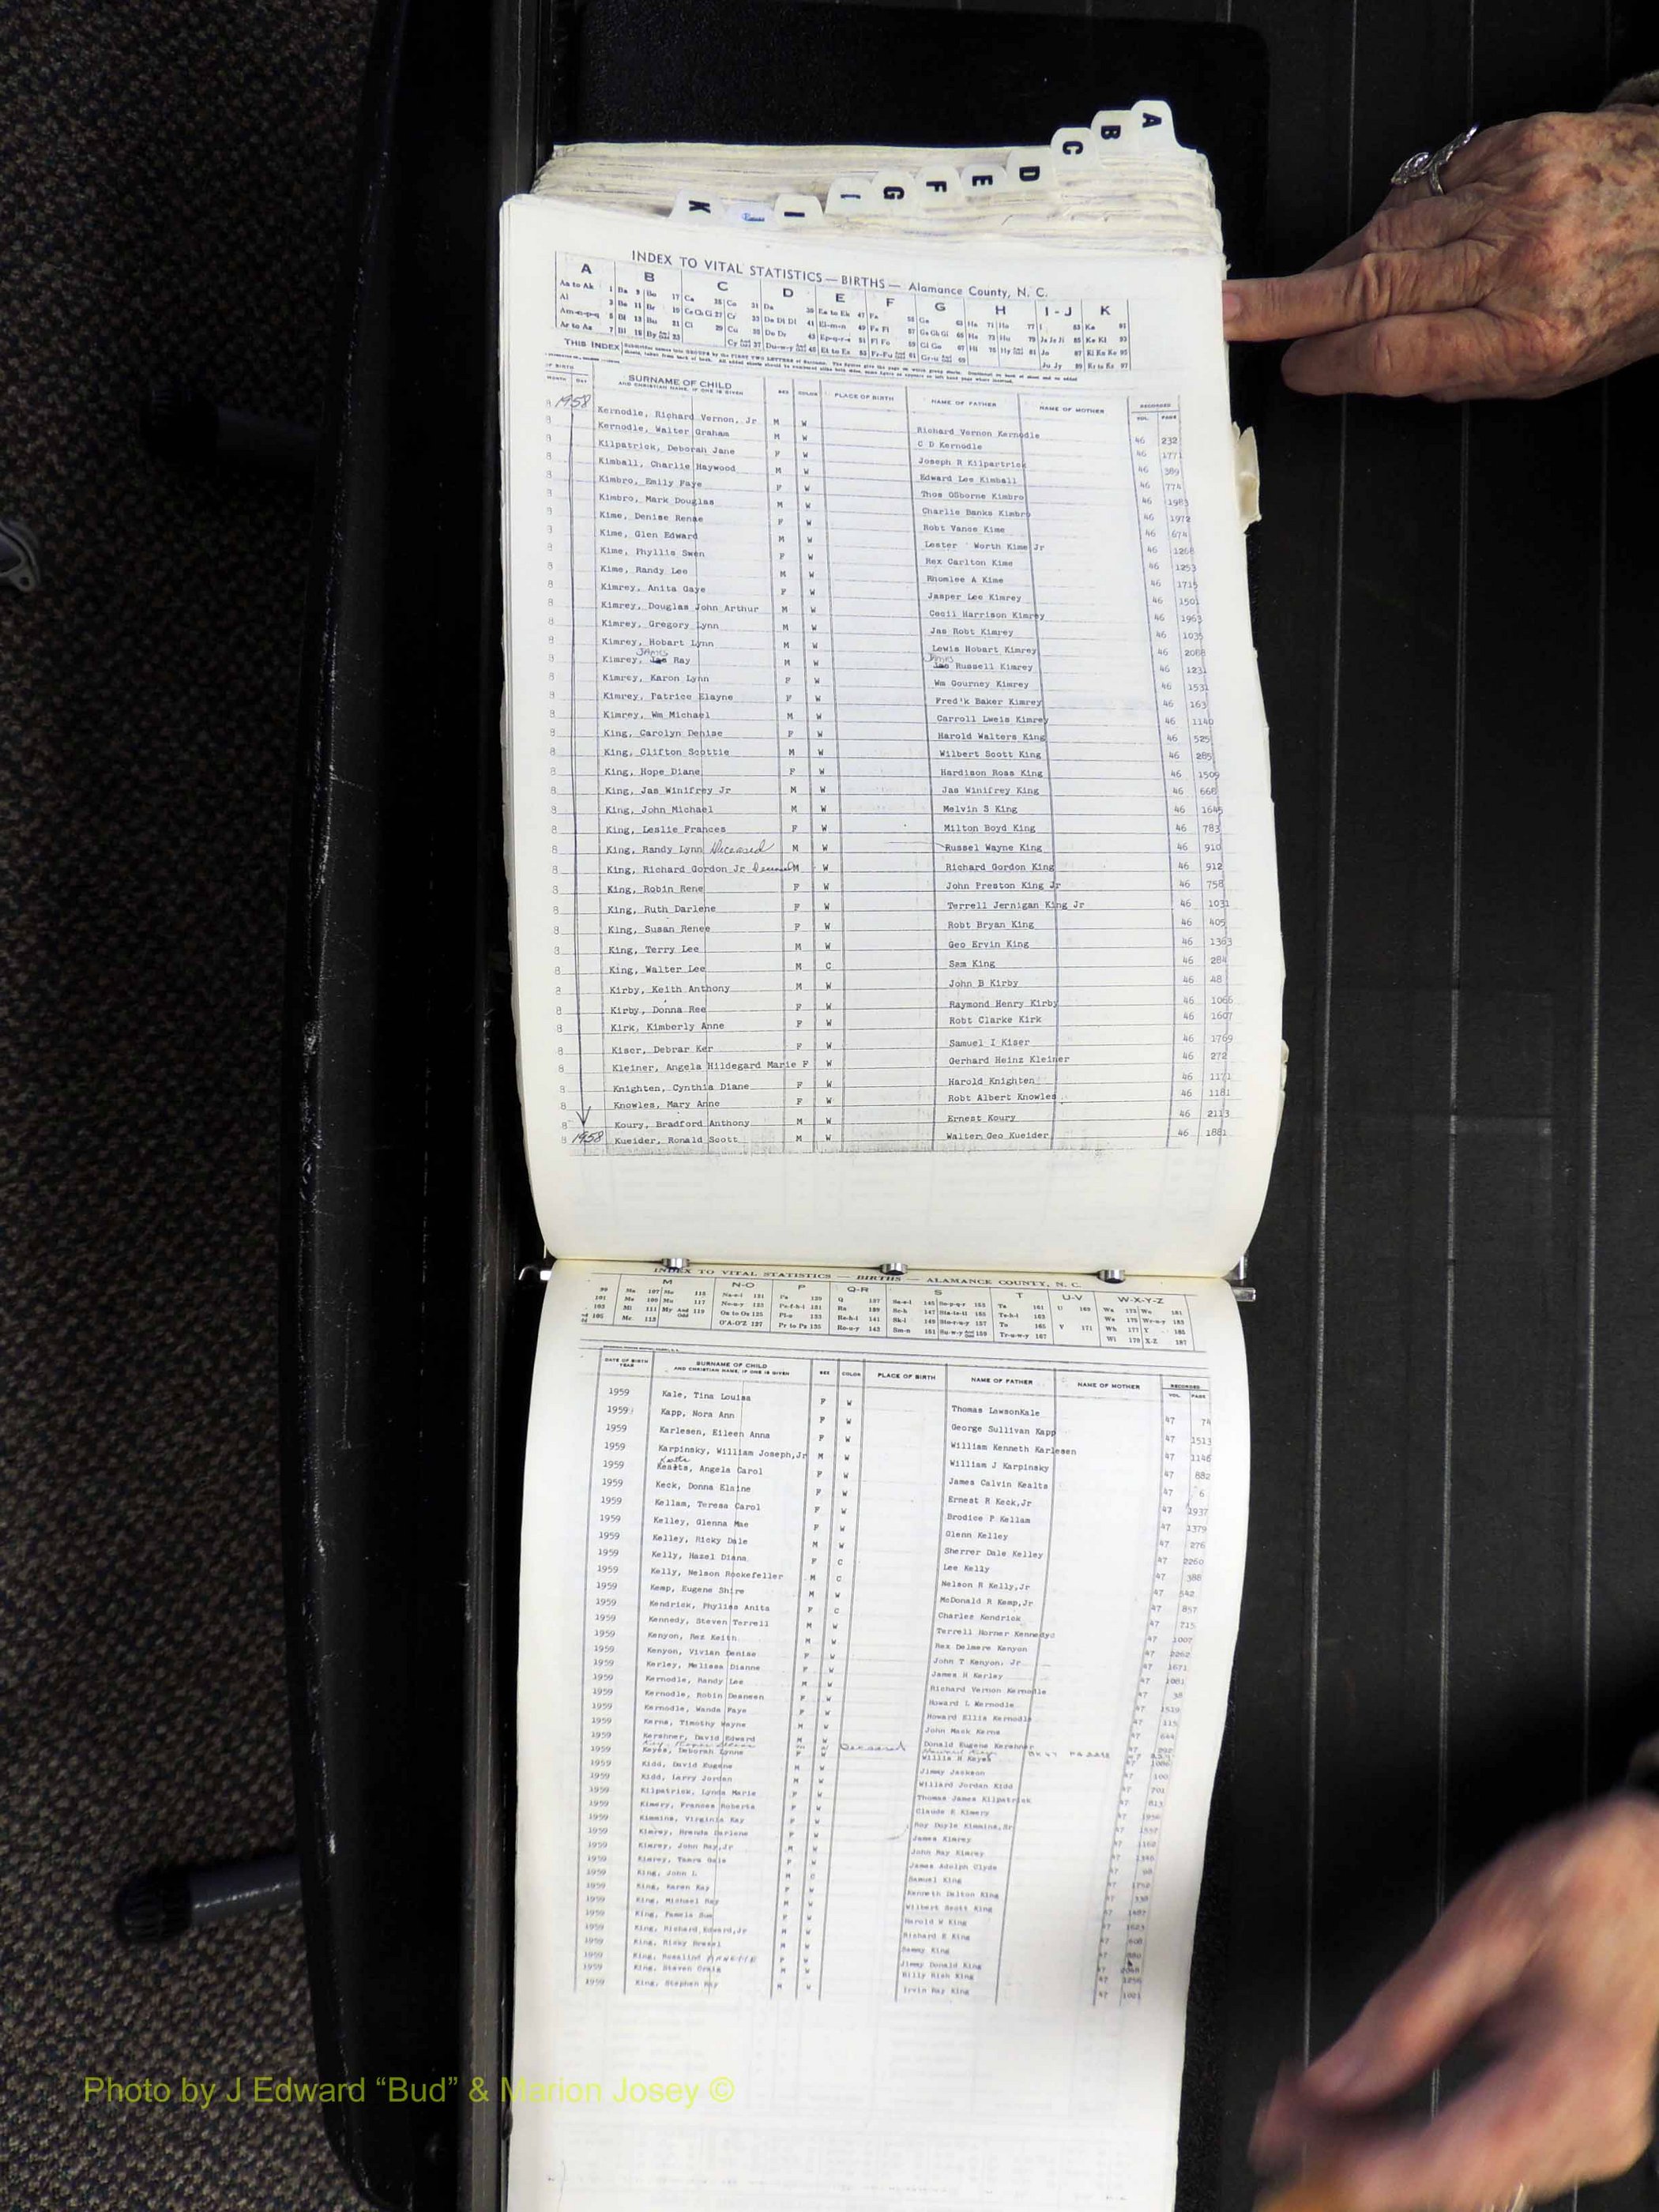 A
B
C
D
E
F
G
I
I
K
INDEX TO VITAL STATISTICS — BIRTHS — Alamance County, N. C.
A B C D E F G H I - J K
THIS INDEX
SURNAME OF CHILD
AND CHRISTIAN NAME, IF ONE IS GIVEN
SEX COLOR PLACE OF BIRTH NAME OF FATHER NAME OF MOTHER RECORDED
VOL. PAGE
1958
8 Kernodle, Richard Vernon, Jr M W Richard Vernon Kernodle 46 232
8 Kernodle, Walter Graham M W C D Kernodle 46 1771
8 Kilpatrick, Deborah Jane F W Joseph R Kilpartrick 46 389
8 Kimball, Charlie Haywood M W Edward Lee Kimball 46 774
8 Kimbro, Emily Faye F W Thos OSborne Kimbro 46 1983
8 Kimbro, Mark Douglas M W Charlie Banks Kimbro 46 1972
8 Kime, Denise Renae F W Robt Vance Kime 46 674
8 Kime, Glen Edward M W Lester Worth Kime Jr 46 1268
8 Kime, Phyllis Swen F W Rex Carlton Kime 46 1253
8 Kime, Randy Lee M W Rhomlee A Kime 46 1715
8 Kimrey, Anita Gaye F W Jasper Lee Kimrey 46 1501
8 Kimrey, Douglas John Arthur M W Cecil Harrison Kimrey 46 1963
8 Kimrey, Gregory Lynn M W Jas Robt Kimrey 46 1035
8 Kimrey, Hobart Lynn M W Lewis Hobart Kimrey 46 2088
JAMES JAMES
8 Kimrey, Jas Ray M W Jas Russell Kimrey 46 1231
8 Kimrey, Karon Lynn F W Wm Gourney Kimrey 46 1531
8 Kimrey, Patrice Elayne F W Fred'k Baker Kimrey 46 163
8 Kimrey, Wm Michael M W Carroll Lweis Kimrey 46 1140
8 King, Carolyn Denise F W Harold Walters King 46 525
8 King, Clifton Scottie M W Wilbert Scott King 46 285
8 King, Hope Diane F W Hardison Ross King 46 1509
8 King, Jas Winifrey Jr M W Jas Winifrey King 46 668
8 King, John Michael M W Melvin S King 46 1645
8 King, Leslie Frances F W Milton Boyd King 46 783
8 King, Randy Lynn Deceased M W Russel Wayne King 46 910
8 King, Richard Gordon Jr Deceased M W Richard Gordon King 46 912
8 King, Robin Rene F W John Preston King Jr 46 758
8 King, Ruth Darlene F W Terrell Jernigan King Jr 46 1031
8 King, Susan Renee F W Robt Bryan King 46 405
8 King, Terry Lee M W Geo Ervin King 46 1363
8 King, Walter Lee M C Sam King 46 284
8 Kirby, Keith Anthony M W John B Kirby 46 48
8 Kirby, Donna Ree F W Raymond Henry Kirby 46 1066
8 Kirk, Kimberly Anne F W Robt Clarke Kirk 46 1607
8 Kiser, Debrar Ker F W Samuel I Kiser 46 1769
8 Kleiner, Angela Hildegard Marie F W Gerhard Heinz Kleiner 46 272
8 Knighten, Cynthia Diane F W Harold Knighten 46 1171
8 Knowles, Mary Anne F W Robt Albert Knowles 46 1181
8 Koury, Bradford Anthony M W Ernest Koury 46 2113
8 1958 Kueider, Ronald Scott M W Walter Geo Kueider 46 1881
INDEX TO VITAL STATISTICS — BIRTHS — ALAMANCE COUNTY, N. C.
M N-O P Q-R S T U-V W-X-Y-Z
DATE OF BIRTH
YEAR
SURNAME OF CHILD
AND CHRISTIAN NAME, IF ONE IS GIVEN
SEX COLOR PLACE OF BIRTH NAME OF FATHER NAME OF MOTHER RECORDED
VOL. PAGE
1959 Kale, Tina Louisa F W Thomas LawsonKale 47 74
1959 Kapp, Nora Ann F W George Sullivan Kapp 47 1513
1959 Karlesen, Eileen Anna F W William Kenneth Karlesen 47 1146
1959 Karpinsky, William Joseph,Jr M W William J Karpinsky 47 882
1959 Keatts, Angela Carol F W James Calvin Kealts 47 6
1959 Keck, Donna Elaine F W Ernest R Keck,Jr 47 1937
1959 Kellam, Teresa Carol F W Brodice P Kellam 47 1379
1959 Kelley, Glenna Mae F W Glenn Kelley 47 276
1959 Kelley, Ricky Dale M W Sherrer Dale Kelley 47 2260
1959 Kelly, Hazel Diana F C Lee Kelly 47 388
1959 Kelly, Nelson Rockefeller M C Nelson R Kelly,Jr 47 542
1959 Kemp, Eugene Shire M W McDonald R Kemp,Jr 47 857
1959 Kendrick, Phyliss Anita F C Charles Kendrick 47 715
1959 Kennedy, Steven Terrell M W Terrell Horner Kennedy 47 1007
1959 Kenyon, Rex Keith M W Rex Delmere Kenyon 47 2262
1959 Kenyon, Vivian Denise F W John T Kenyon, Jr 47 1671
1959 Kerley, Melissa Dianne F W James H Kerley 47 1081
1959 Kernodle, Randy Lee M W Richard Vernon Kernodle 47 38
1959 Kernodle, Robin Deaneen F W Howard L Kernodle 47 1519
1959 Kernodle, Wanda Faye F W Howard Ellis Kernodle 47 115
1959 Kerns, Timothy Wayne M W John Mack Kerns 47 644
1959 Kershner, David Edward M W Donald Eugene Kershner 47
Deceased
1959 Keyes, Deborah Lynne F W Willie H Keyes 47
1959 Kidd, David Eugene M W Jimmy Jackson 47 100
1959 Kidd, Larry Jordan M W Willard Jordan Kidd 47 701
1959 Kilpatrick, Lynda Marie F W Thomas James Kilpatrick 47 813
1959 Kimery, Frances Roberta F W Claude E Kimery 47
1959 Kimmins, Virginia Kay F W Roy Doyle Kimmins,Sr 47
1959 Kimrey, Brenda Darlene F W James Kimrey 47 1162
1959 Kimrey, John Ray,Jr M W John Ray Kimrey 47
1959 Kimrey, Tamra Gale F W James Adolph Clyde 47 98
1959 King, John L M C Samuel King 47
1959 King, Karen Kay F W Kenneth Dalton King 47
1959 King, Michael Ray M W Wilbert Scott King 47
1959 King, Pamela Sue F W Harold W King 47
1959 King, Richard Edward,Jr M W Richard E King 47
1959 King, Ricky M W Sammy King 47
1959 King, Rosalind F W Jimmy Donald King 47
1959 King, Steven Craig M W Billy Rish King 47
1959 King, Stephen Ray M W Irvin Ray King 47 1021
Photo by J Edward “Bud” & Marion Josey ©